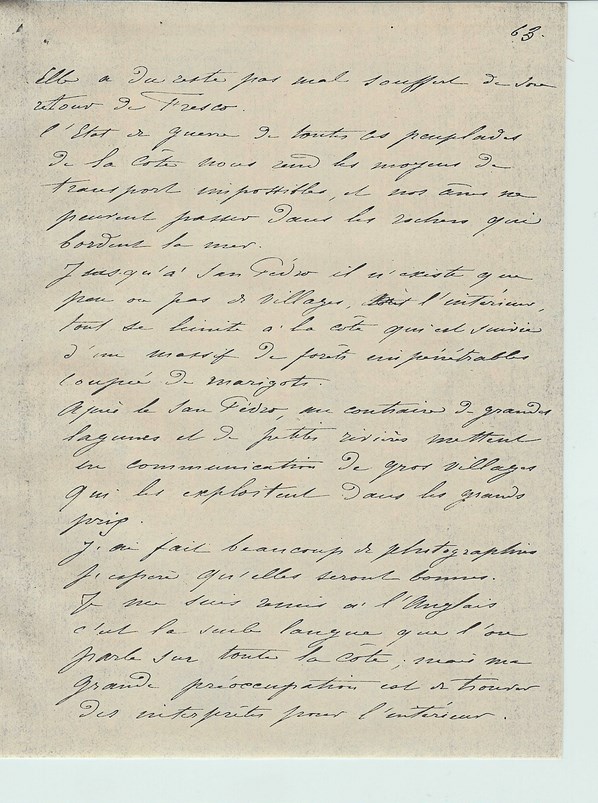 63.
Elle a du reste pas mal souffert de son
retour de Fresco.
l'Etat de guerre de toutes ces peuplades
de la côte nous rend les moyens de
transport impossibles, et nos ânes ne
peuvent passer dans les rochers qui
bordent la mer.
Jusqu'à San Pédro il n'existe que
peu ou pas de villages, l'intérieur,
tout se limite à la côte qui est suivie
d'un massif de forêts impénétrables
coupée de marigots.
Après le San Pédro, au contraire de grandes
lagunes et de petites rivières mettent
en communication de gros villages
qui les exploitent dans les grands
prix.
J'ai fait beaucoup de photographies
j'espère qu'elles seront bonnes.
Je me suis remis à l'Anglais
c'est la seule langue que l'on
parle sur toute la côte ; mais ma
grande préoccupation est de trouver
des interprètes pour l'intérieur.